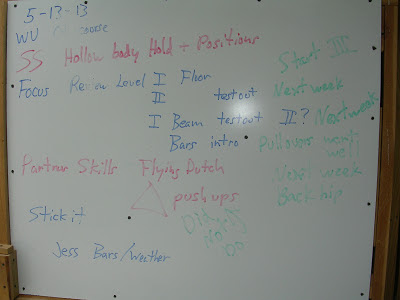 5-13-13
WU course
SS Hollow body Hold + Positions
Start III
Focus Review Level I Floor
Next week
II testout
I Beam testout II? Next week
Bars intro Pullovers went well
Partner Skills Flying Dutch
Next week
push ups
Back hip
Stick it
Did not
Do
Jess Bars/Weather